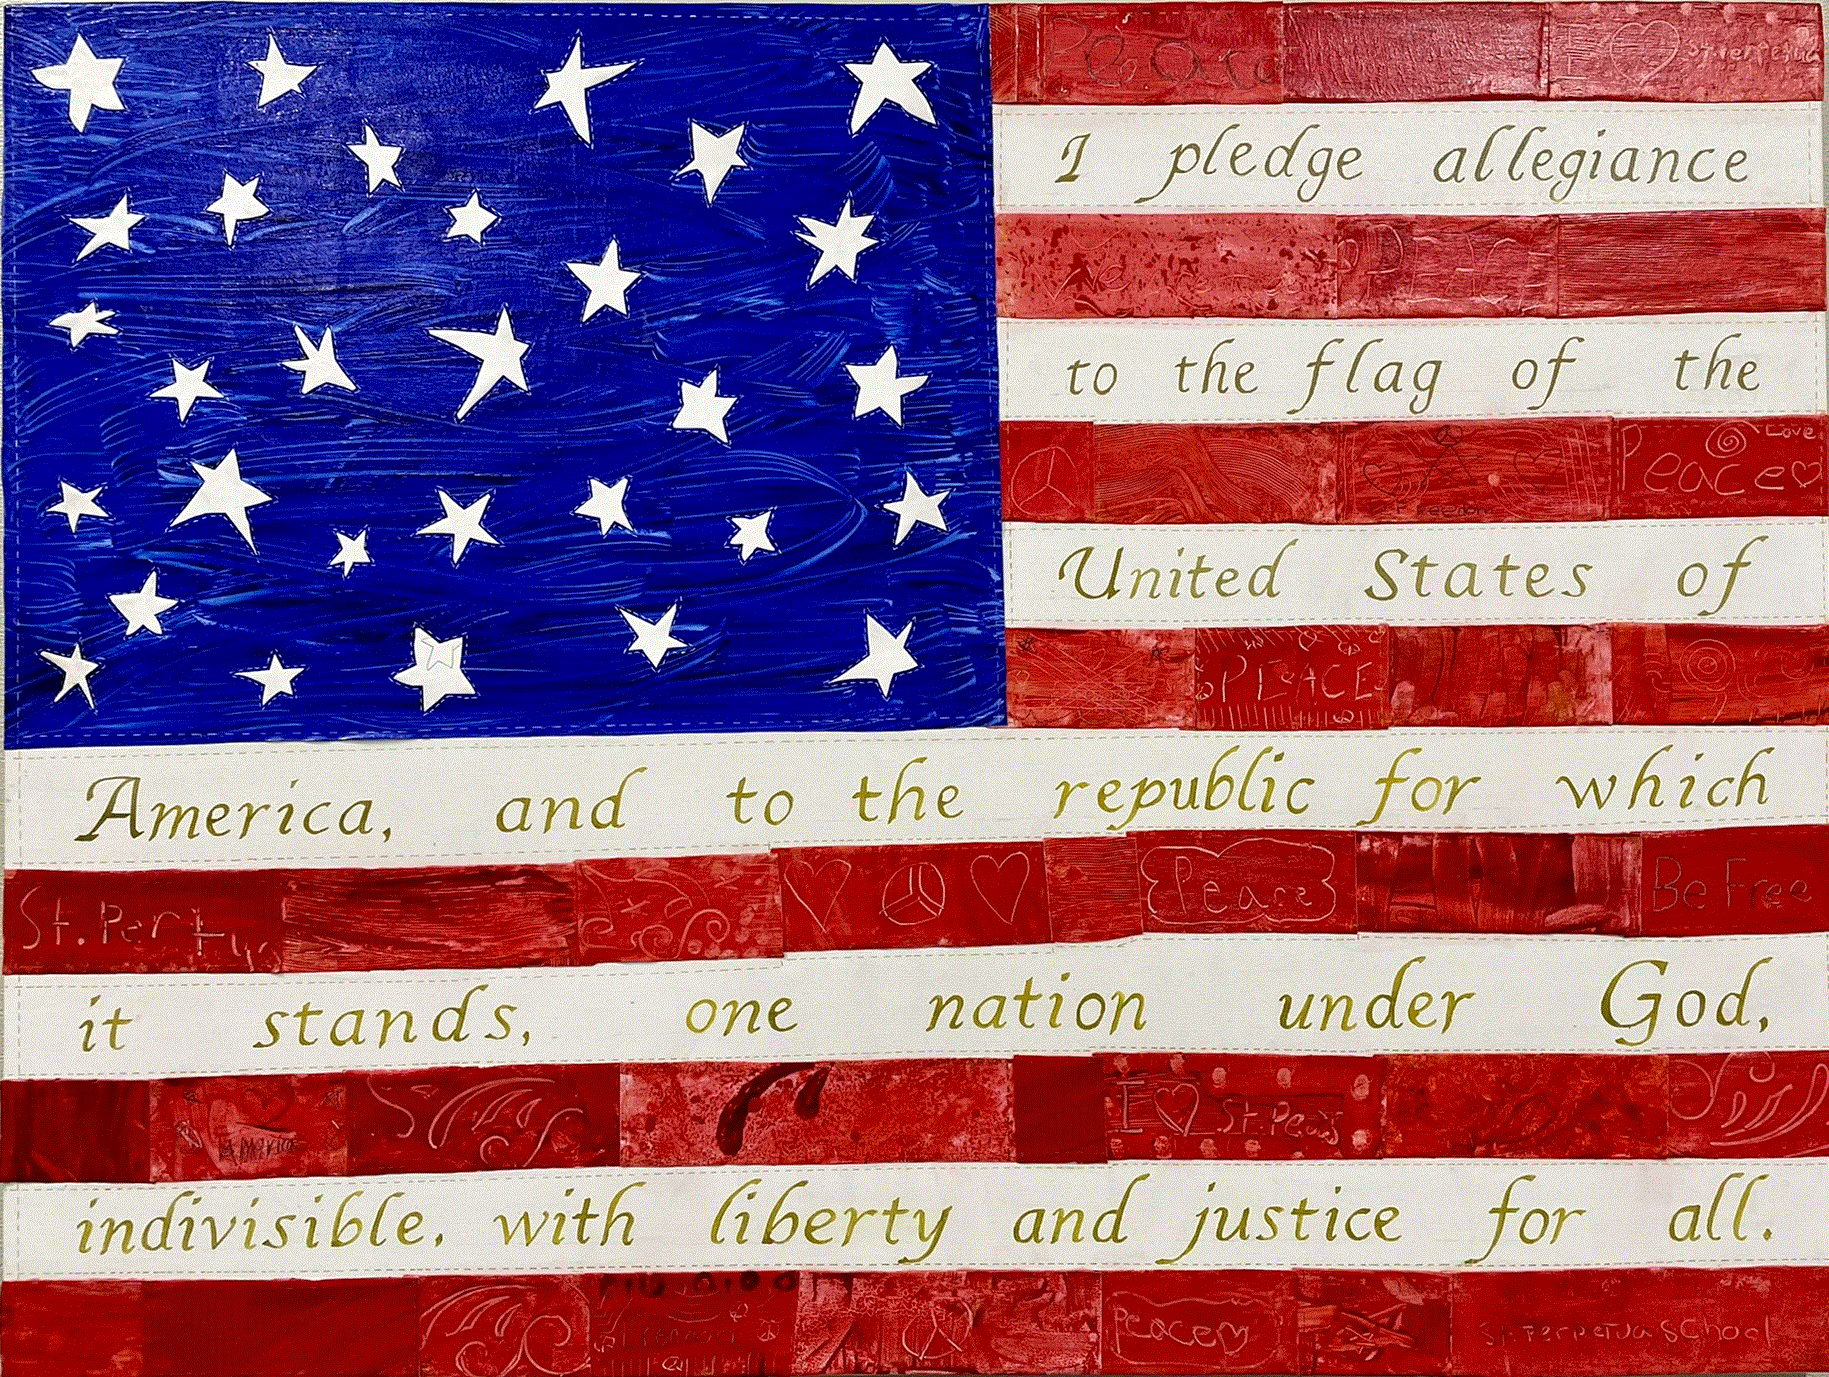 Peace
I ♡ St. Perpetua
I pledge allegiance
PEACE
to the flag of the
Love
Peace ♡
Freedom
United States of
PEACE
America, and to the republic for which
St. Perpetu
Peace
Be Free
it stands, one nation under God,
I ♡ St. Perps
AMERICA
indivisible, with liberty and justice for all.
Freedom
Peace ♡
St. Perpetua School